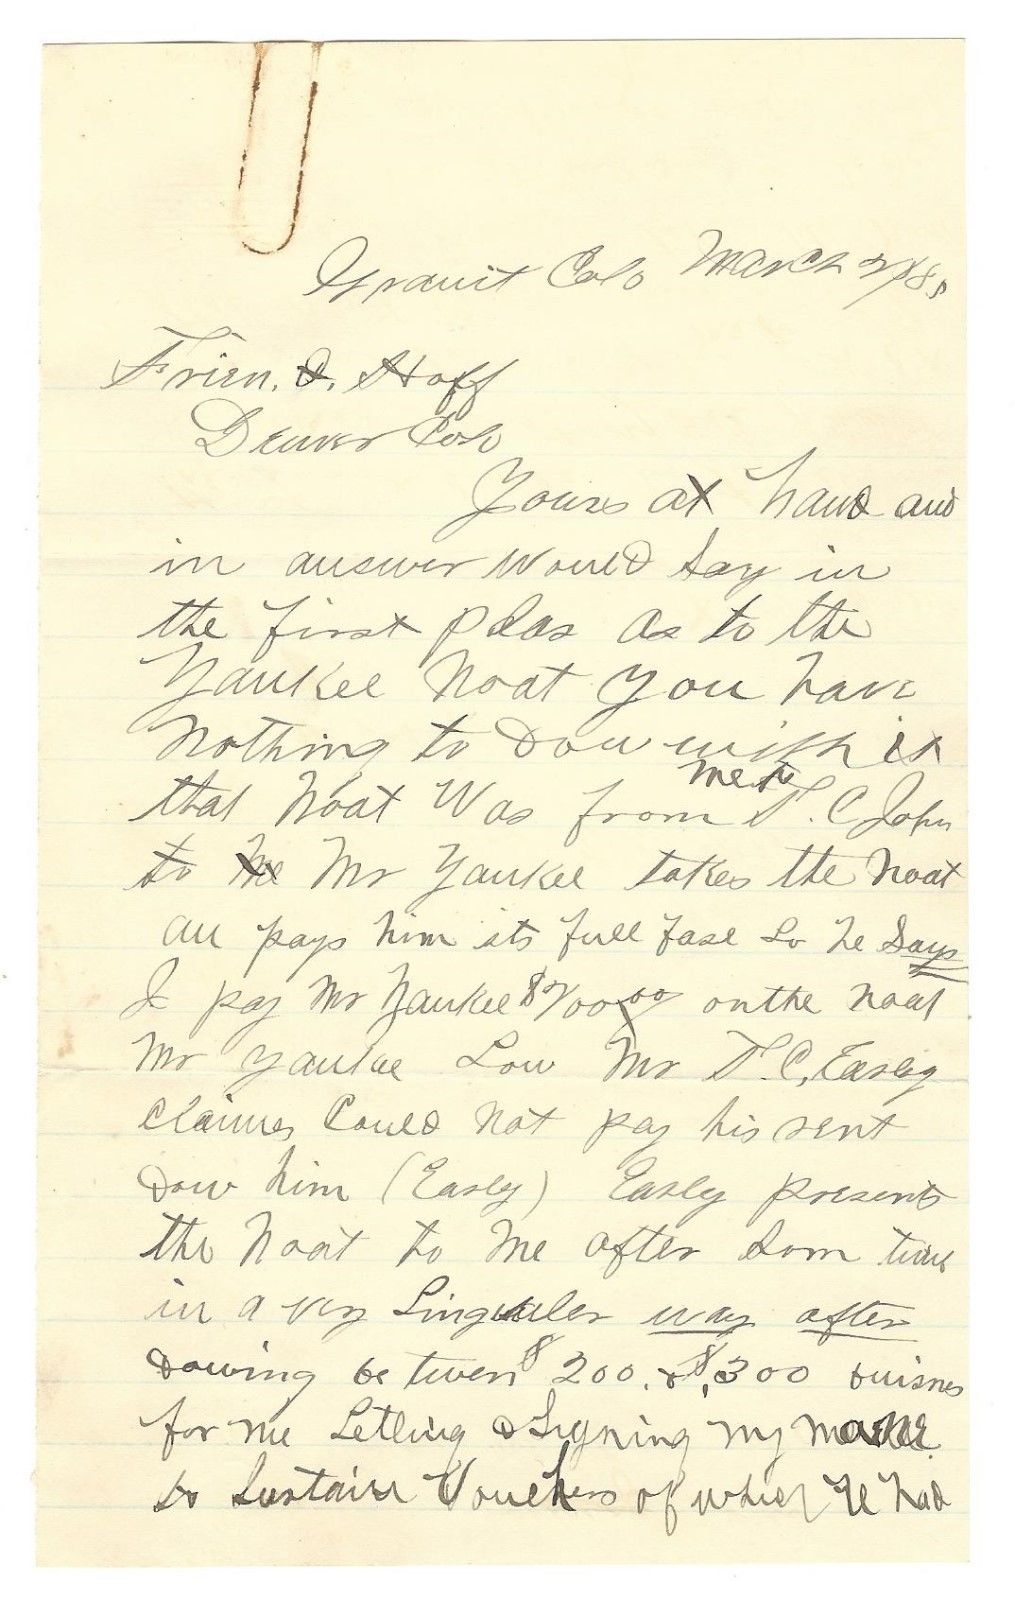 Granit Colo March 2/8
Frien. D. Hoff
Denver Colo
Yours at hand and
in answer Would Say in
the first plas as to the
Yankee Noat you have
Nothing to dow with it
that Noat Was from me to T. C John
to Mr Yankee takes the Noat
an pays him its full fase So he Says
I pay Mr Yankee $200.00 on the Noat
Mr Yankee Sow Mr T. C. Easley
claimes Could Not pay his rent
Dow him (Easly) Easly presents
the Noat to Me after Som time
in a very Singuler way after
Dowing be tween $200. & $300 buisnes
for me Setling & Signing my Name
to Sustain Vouchers of which He had